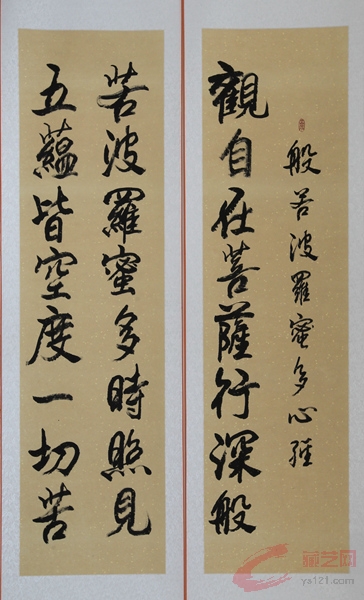 般若波羅蜜多心經
觀自在菩薩行深般
若波羅蜜多時照見
五蘊皆空度一切苦
藏艺网
ys121.com